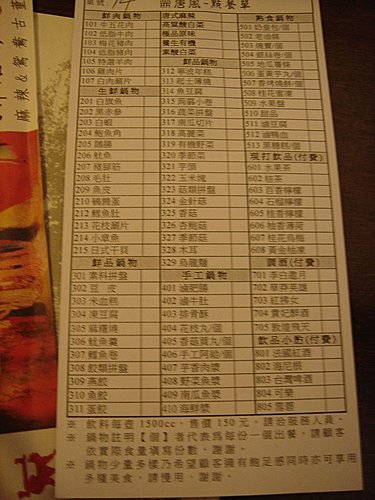 桌號: 14 鼎唐風~點餐單
鮮肉鍋物
101 牛五花肉
102 低脂牛肉
103 梅花豬肉
104 低脂豬肉
105 特選羊肉
106 雞肉片
107 白肉涮片
生鮮鍋物
201 白旗魚
202 黑赤參
203 白蝦
204 鮑魚角
205 鵝腸
206 魷魚
207 豬腳筋
208 毛肚
209 魚皮
210 鵪鶉蛋
211 鱈魚肚
213 花枝涮片
214 小章魚
215 日式干貝
鮮品鍋物
301 素料拼盤
302 豆 皮
303 米血糕
304 凍豆腐
305 麻糬燒
306 魷魚羹
307 鱈魚卷
308 餃類拼盤
309 燕餃
310 魚餃
311 蛋餃
唐式鍋底
高粱酸白菜
極品原味
養生有機
素酸白菜
鮮品鍋物
312 寧波年糕
313 起士薄燒
314 魚豆腐
315 蒟蒻小卷
316 蔬菜拼盤
317 南瓜切片
318 高麗菜
319 有機野菜
320 季節菜
321 芋頭
322 玉米塊
323 菇類拼盤
324 金針菇
325 香菇
326 杏鮑菇
327 季節菇
328 木耳
329 烏龍麵
手工鍋物
401 滷肥腸
402 滷牛肚
403 排骨酥
404 花枝丸/個
405 香菇貢丸/個
406 手工阿給/個
407 芋香肉漿
408 野菜魚漿
409 南瓜魚漿
410 海鮮漿
熟食鍋物
501 奶皇包/個
502 老油條
503 燒賣/個
504 銀絲卷/個
505 地瓜薯條
506 蛋黃芋丸/個
507 香烤燒餅/個
508 桂花蜜凍
509 水果盤
510 甜品
511 滷豆腐
512 滷鴨血
513 黑糖糕/個
現打飲品(付費)
601 水果茶
602 桔茶
603 百香檸檬
604 石榴檸檬
605 桂香檸檬
606 柚香薄荷
607 桂花烏梅
608 黃金柚凍
調酒(付費)
701 李白邀月
702 草莽英雄
703 紅拂女
704 貴妃醉酒
705 敦煌飛天
飲品小酌(付費)
801 法國紅酒
802 海尼根
803 台灣啤酒
804 可樂
805 雪碧
※ 飲料每壺 1500cc，售價 150 元，請洽服務人員。
※ 鍋物註明【個】者代表為每份一個出餐，請顧客
依實際食量填寫份數，謝謝。
※ 鍋物少量多樣乃希望顧客擁有飽足感同時亦可享用
多種美食，請慢用，謝謝。
麻辣&鴛鴦古董